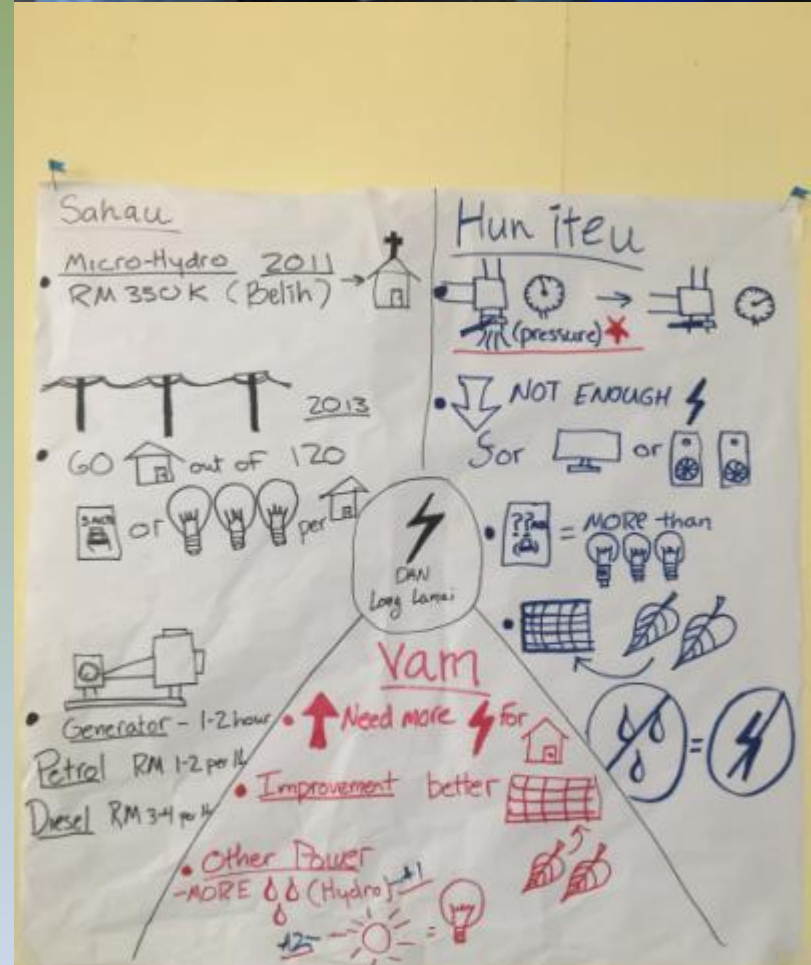 Sahau
Micro-Hydro 2011
RM 350K (Belih)
2013
60 out of 120
or per
Generator - 1-2 hour
Petrol RM 1-2 per lt
Diesel RM 3-4 per lt
Hun iteu
(pressure)
NOT ENOUGH
for or
?? = MORE than
=
DAN
Long Lamai
Vam
Need more for
Improvement better
Other Power
-MORE (Hydro) #1
#2 =